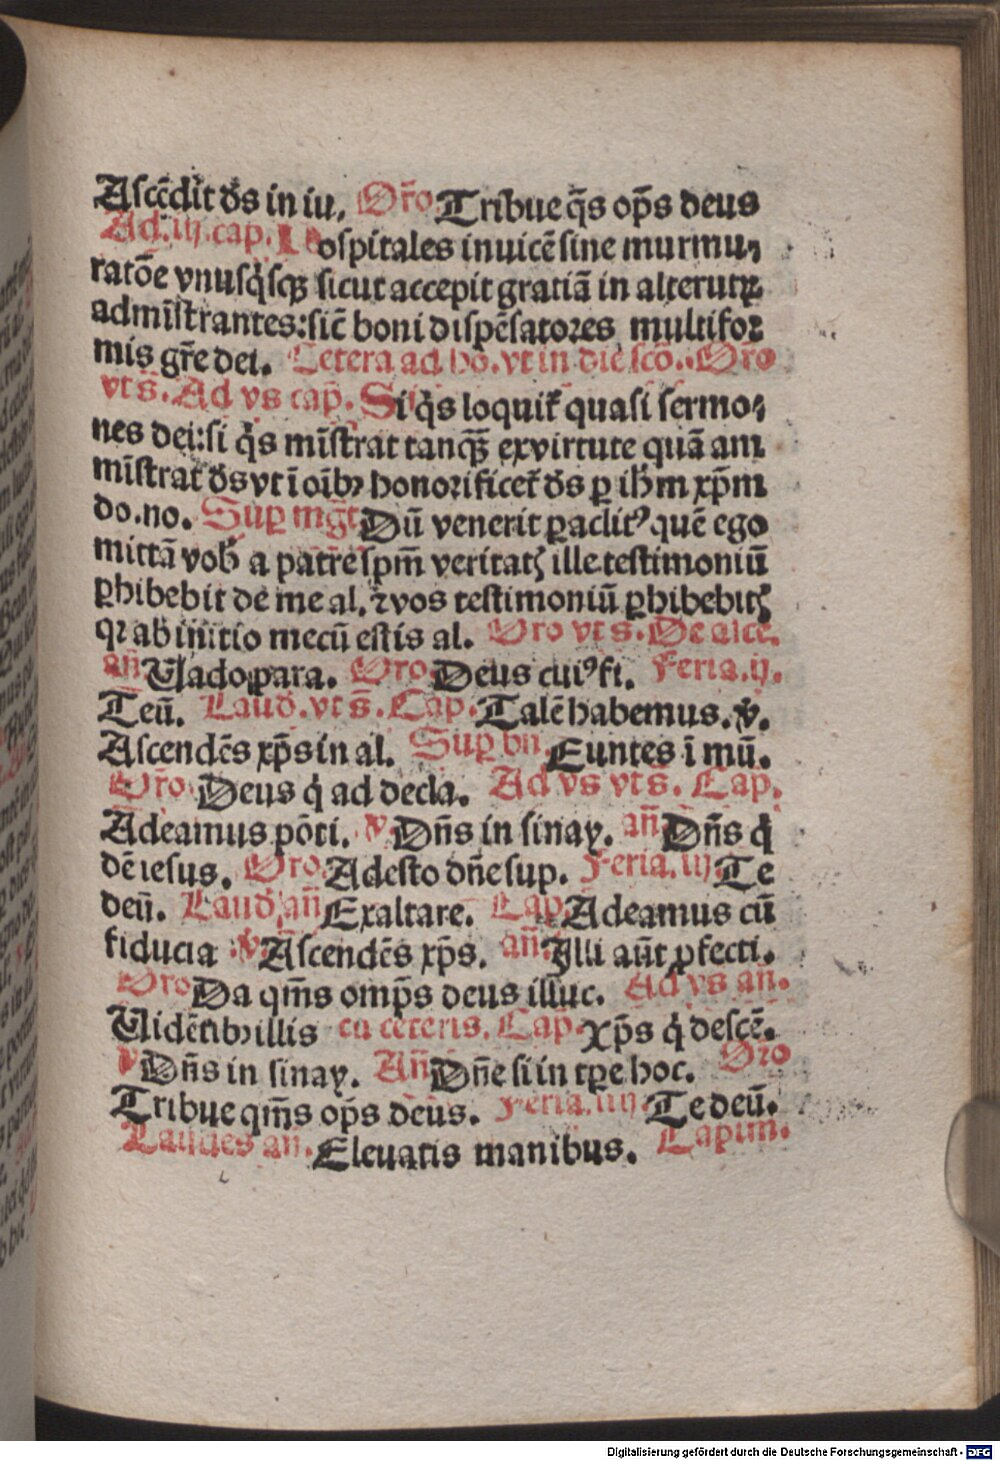 Ascēdit dn̄s in iu. Or̄o Tribue q̄s op̄s deus
Ad.iij.cap. Hospitales inuicē sine murmu⸗
ratōe vnusq̇sqꝫ sicut accepit gratiā in alterutꝝ
admīstrantes:sic̄ boni dispēsatores multifor
mis gr̄e dei. Cetera ad ho.vt in die scō. Or̄o
vt s̄. Ad vs cap̄. Si q̇s loquit᷑ quasi sermo⸗
nes dei:si q̇s mīstrat tanqꝫ̄ ex virtute quā am
mīstrat ds̄ vt ī oībꝰ honorificet᷑ ds̄ ꝑ ih̄m xp̄m
do.no. Suꝑ mgt̄ Dū venerit ꝑaclitꝰ quē ego
mittā vob̄ a patre sp̄m veritatꝭ ille testimoniū
ꝑhibebit de me al. ⁊ vos testimoniū ꝑhibebitꝭ
qꝛ ab initio mecū estis al. Oro vt s. De asce.
an̄ Uado ꝑara. Oro Deus cuiꝰ fi. Feria.ij.
Te ū. Laud.vt s̄. Cap. Talē habemus. v̄.
Ascendēs xp̄s in al. Suꝑ bn̄. Euntes ī mū.
Or̄o Deus q̇ ad decla. Ad vs vt s. Cap.
Adeamus pōti. v̄ Dn̄s in sinay. an̄ Dn̄s q̇
dē iesus. Oro Adesto dn̄e sup. Feria.iij Te
deū. Laud̄ an̄ Exaltare. Cap. Adeamus cū
fiducia v̄ Ascendēs xp̄s. an̄ Illi aūt ꝓfecti.
Oro Da qm̄s omp̄s deus illuc. Ad vs an.
Uidētibꝰ illis cū ceteris. Cap. Xp̄s q̇ descē.
v̄ Dn̄s in sinay. An̄ Dn̄e si in tꝑe hoc. Oro
Tribue qm̄s op̄s deus. Feria.iiij Te deū.
Laudes an. Eleuatis manibus. Capim.
Digitalisierung gefördert durch die Deutsche Forschungsgemeinschaft - DFG